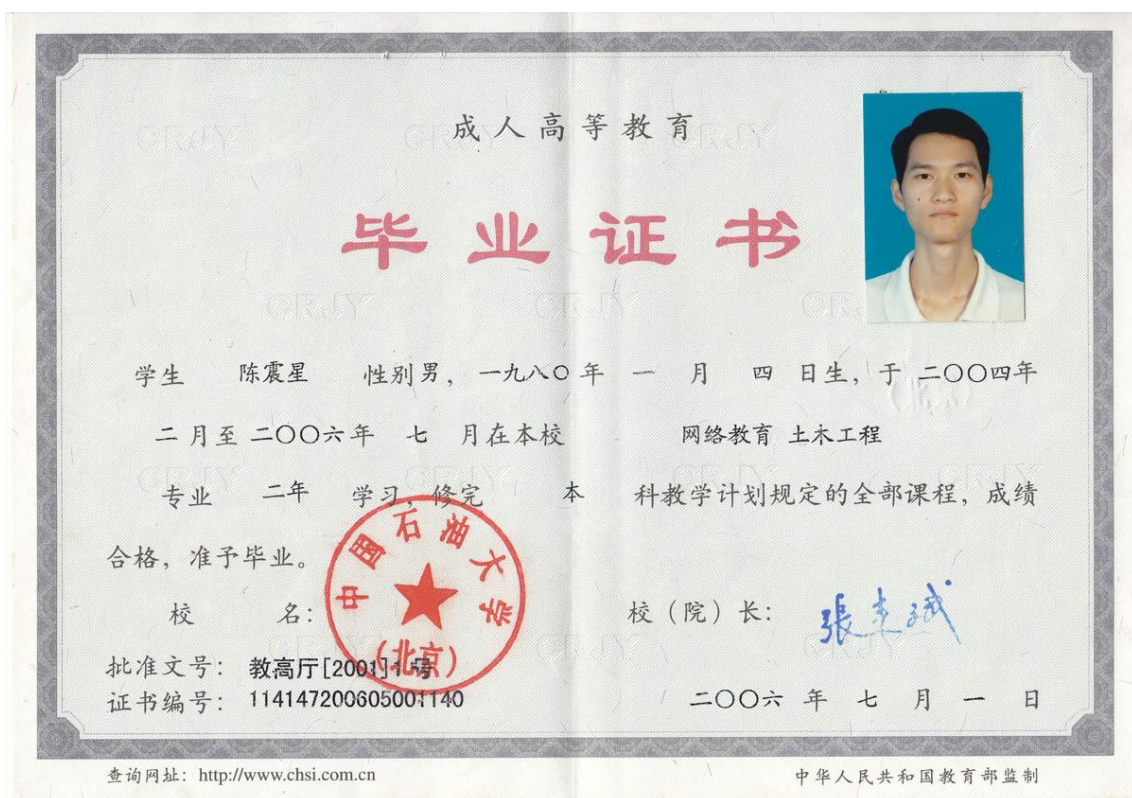 成人高等教育
毕业证书
学生 陈震星 性别男，一九八〇年 一 月 四 日生，于 二〇〇四年
二 月至 二〇〇六年 七 月在本校 网络教育 土木工程
专业 二年 学习，修完 本 科教学计划规定的全部课程，成绩
合格，准予毕业。
校 名：
中国石油大学
（北京）
校（院）长：
批准文号： 教高厅[2001]1号
证书编号： 114147200605001140
二〇〇六 年 七 月 一 日
查询网址：http://www.chsi.com.cn
中华人民共和国教育部监制
CRJY